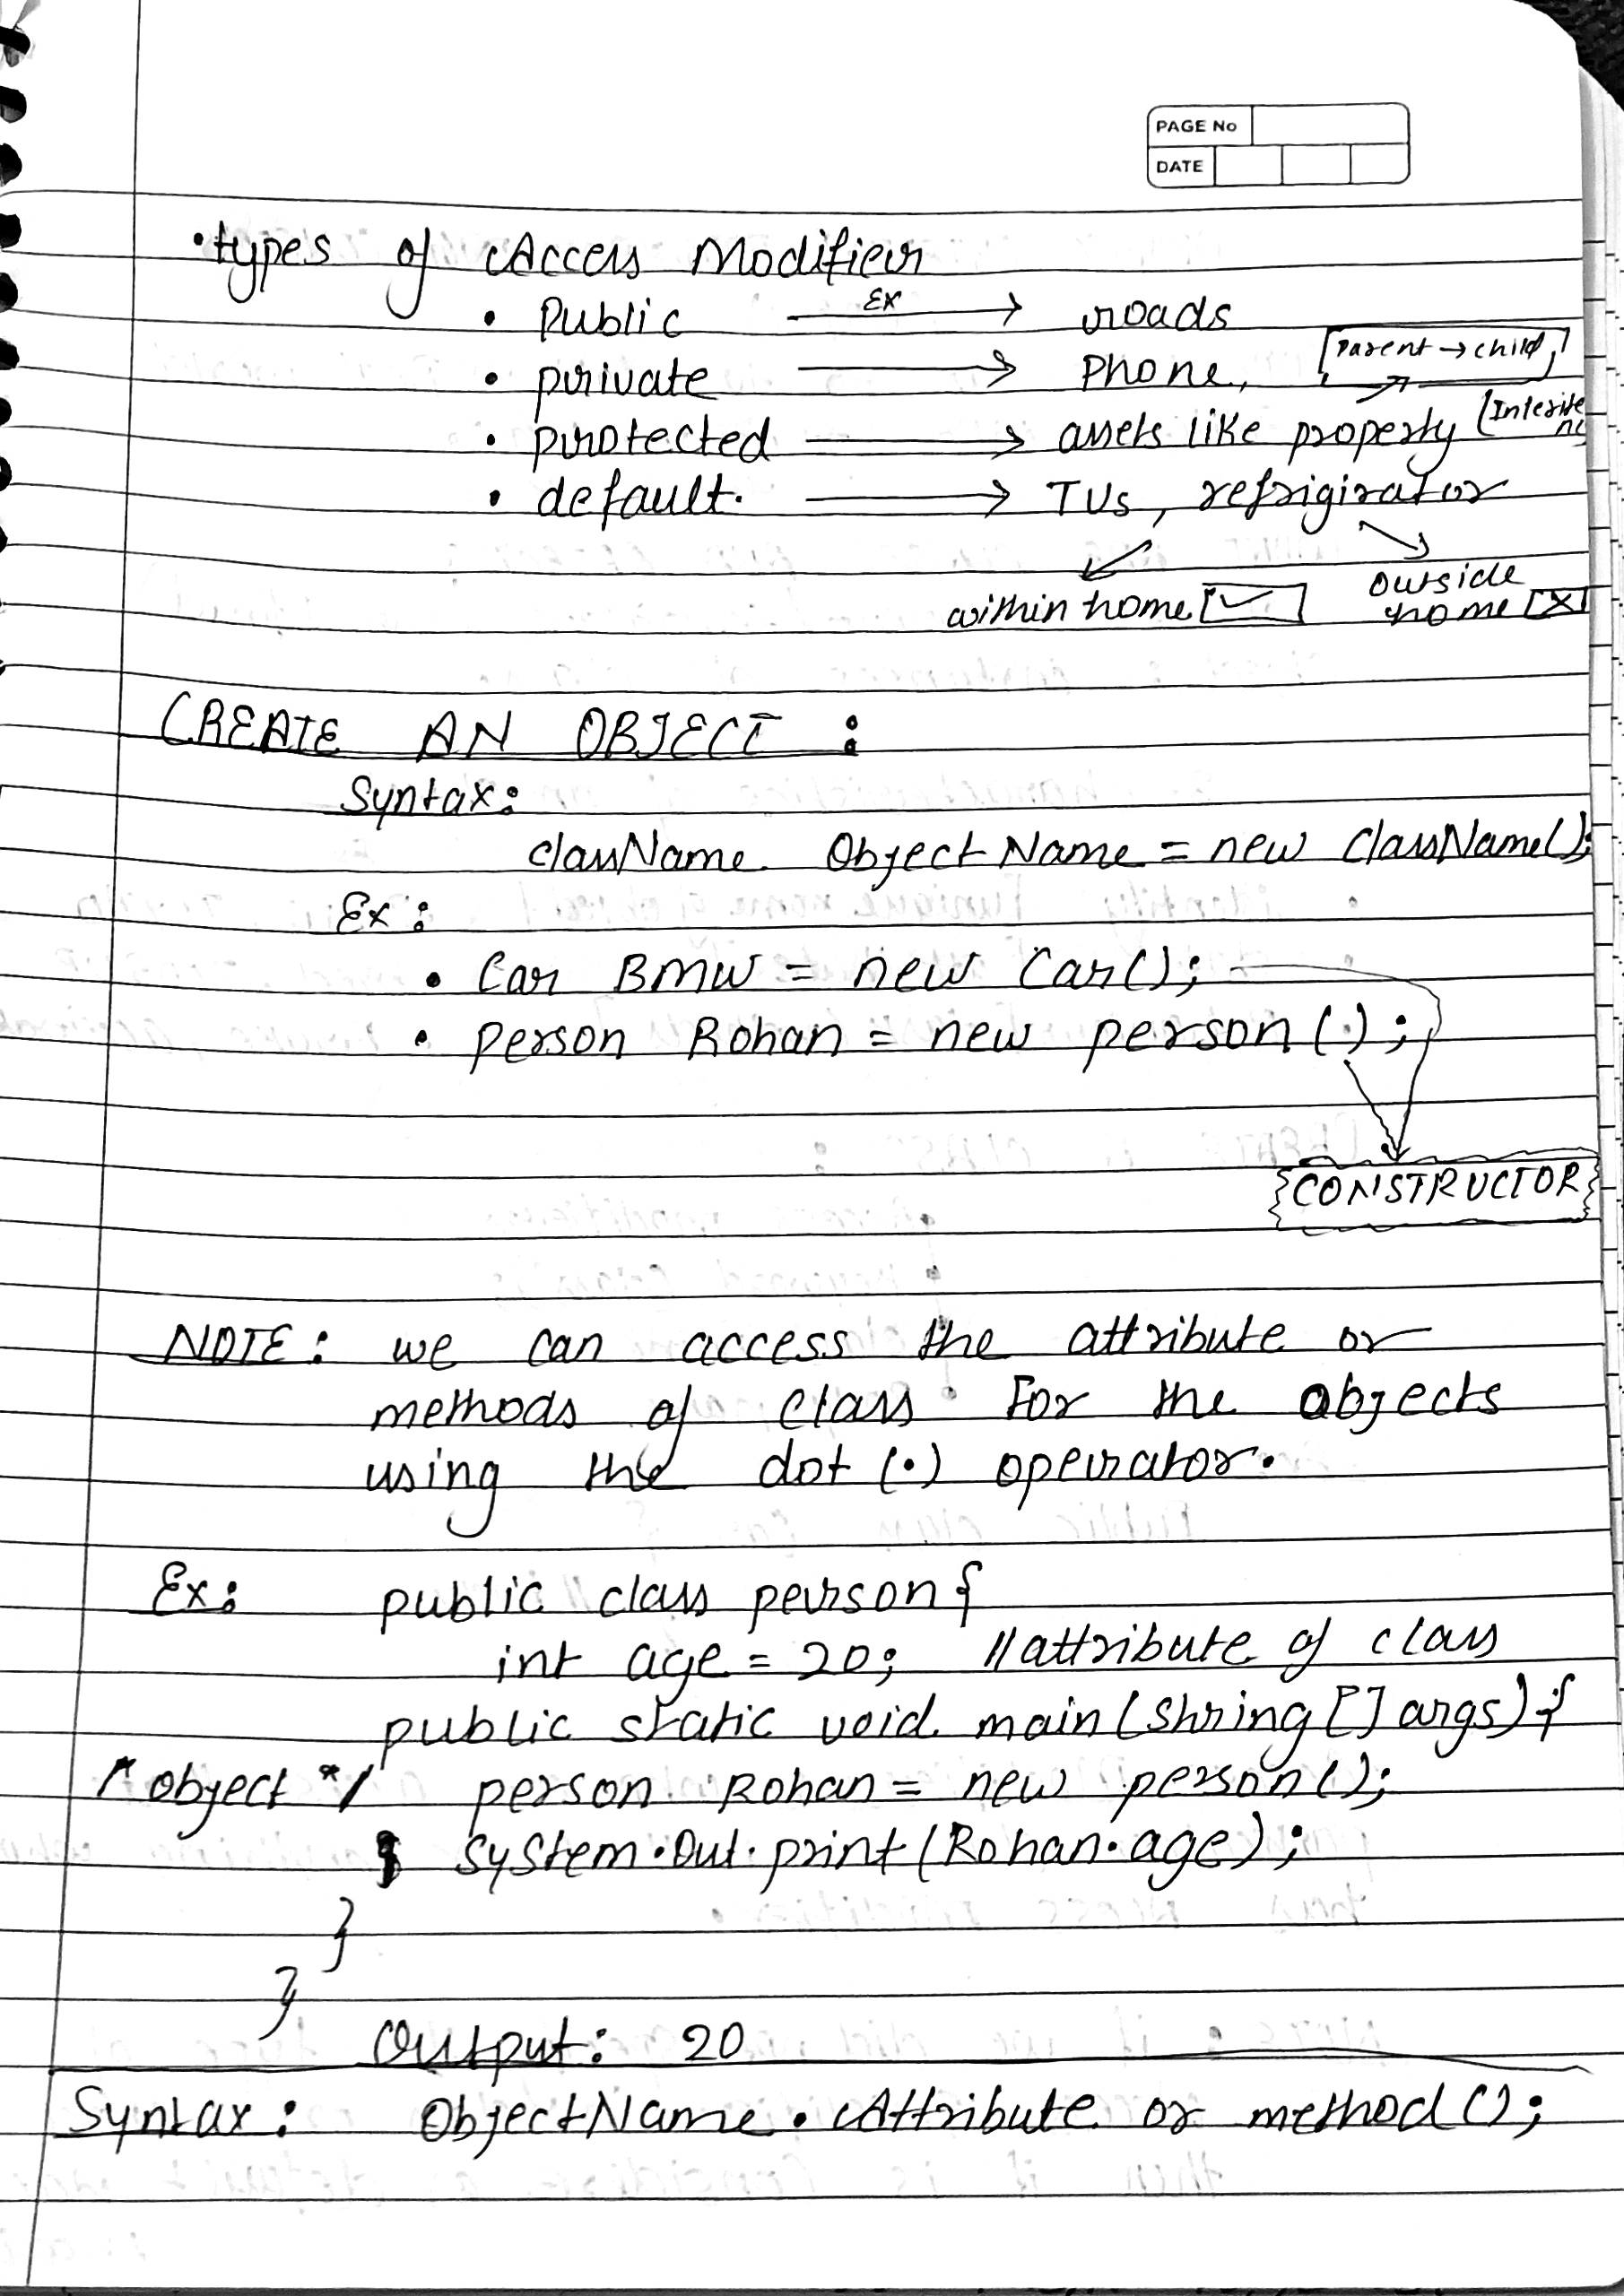 PAGE No
DATE
• types of Access Modifier
• Public Ex → roads
• private → Phone, [Parent → child]
• protected → assets like property (Interite
• default. → TVs, refrigirator
within home [✓] outside home [X]
CREATE AN OBJECT :
Syntax:
className ObjectName = new ClassName();
Ex :
• Car BMW = new Car();
• person Rohan = new person();
CONSTRUCTOR
NOTE: we can access the attribute or
methods of class For the objects
using the dot (.) operator.
Ex: public class person{
int age = 20; //attribute of class
public static void main(Shring [] args) {
/* object */ person Rohan = new person();
System.Out.print(Rohan.age);
}
}
Output: 20
Syntax: ObjectName . Attribute or method();